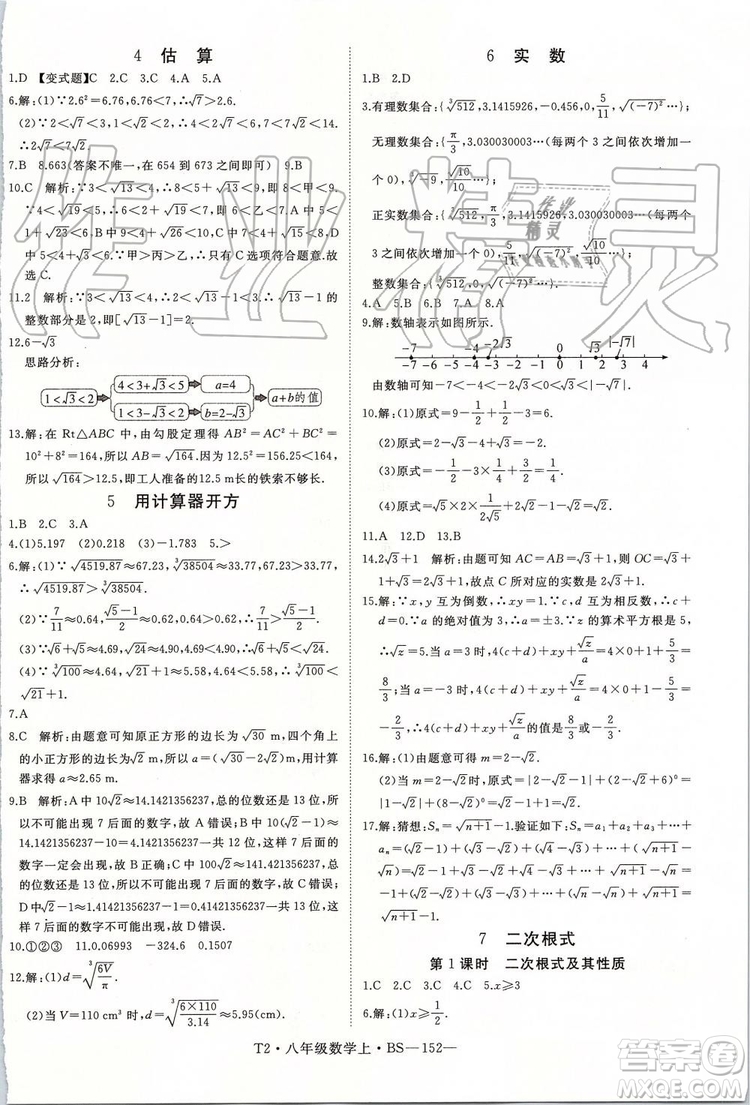 4 估 算
1.D 【变式题】C 2.C 3.C 4.A 5.A
6.解：(1)∵2.6²=6.76，6.76<7，∴√7>2.6.
(2)∵2<√7<3，1<√3<2，6<√7+√3+√7+√2<14.
∴2<√7<7.
7.B 8.663(答案不唯一，在 654 到 673 之间即可) 9.B
整数部分是 2，即[√13-1]=2.
12.6-√3
思路分析：
1<√3<2
4<3+√3<5
a=4
1<3-√3<2
b=2-√3
a+b的值
13.解：在 Rt△ABC 中，由勾股定理得 AB²=AC²+BC²=
10²+8²=164，所以 AB=√164. 因为 12.5²=156.25<164，
所以√164>12.5，即工人准备的 12.5 m 长的铁索不够用.
5 用计算器开方
1.B 2.C 3.A
4.(1)5.197 (2)0.218 (3)-1.783 5.>
6.解：(1)∵√4519.87≈67.23，∛38504≈33.77，67.23>33.77，
∴√4519.87>∛38504.
(2)∵7/11≈0.64，(√5-1)/2≈0.62，∴7/11>(√5-1)/2.
(3)∵√6+√5≈4.69，√24≈4.90，4.69<4.90，∴√6+√5<√24.
(4)∵∛100≈4.64，√21+1≈5.58，4.64<5.58，∴∛100<
√21+1.
7.A
8.C 解析：由题意可知原正方形的边长为√30 m，四个角上
的小正方形的边长为√2 m，则 a=(√30-2√2) m，用计算
器求得 a≈2.65 m.
9.B 解析：A 中 10√2=14.1421356237，总的位数还是 13 位，所
以不可能出现 7 后面的数字，故 A错误；B 中 10(√2-1)=
4.1421356237…共 12 位，这样会出现 7 后面的一个数
字，故 B正确；C 中 100√2=141.421356237…总的位数还
是 13 位，所以不可能出现 7 后面的数字，故 C错误；D 中
√2-1=0.41421356237…总的位数还是 13 位，所以 7 后
面的数字不可能出现，故 D错误.
10.①②③ 11.0.06993 -324.6 0.1507
12.解：(1)d=∛(6V/π).
(2)当 V=110 cm³ 时，d≈∛(6×110/3.14)≈5.95(cm).
6 实 数
1.B 2.D
3.有理数集合：{∛512，3.1415926，-0.456，0，5/11，√(-7)²…}
无理数集合：{π/3，3.030030003…(每两个 3 之间依次增加一
个 0)，∛-9，√10/10…}
正实数集合：{∛512，π/3，3.1415926，3.030030003…(每两个
3 之间依次增加一个 0)，5/11，√(-7)²，√10/10…}
整数集合：{∛512，0，√(-7)²…}
4.A 5.B 6.B 7.A 8.A
9.解：数轴表示如图所示.
-7 -4 -2√3 0 √3 |-√7|
-7 -6 -5 -4 -3 -2 -1 0 1 2 3 4
由数轴可知-7<-4<-2√3<0<√3<|-√7|.
10.解：(1)原式=9-1/2+1/2-3=6.
(2)原式=2-√3-4+√3=-2.
(3)原式=-1/2-3×1/2-1/2=-5/2.
(4)原式=√5×2×1/(2√5)×2=2.
11.A 12.D 13.B
14.2√3+1 解析：由题可知 AC=AB=√3+1，则 OC=√3+1
+√3=2√3+1，故点 C 所对应的实数是 2√3+1.
15.解：∵x，y 互为倒数，∴xy=1. ∵c，d 互为相反数，∴c+
d=0. ∵a 的绝对值为 3，∴a=±3. ∵z 的算术平方根是 5，
∴√z=5. 当 a=3 时，4(c+d)+xy+√z/a=4×0+1+5/3=
8/3；当 a=-3 时，4(c+d)+xy+√z/a=4×0+1-5/3=
-2/3，∴4(c+d)+xy+√z/a的值是8/3或-2/3.
16.解：(1)由题意可得 m=2-√2.
(2)当 m=2-√2时，
17.解：猜想：Sₙ=√(n+1)-1. 验证如下：Sₙ=a₁+a₂+a₃+…+
aₙ=(√2-1)+(√3-√2)+(√4-√3)+…+(√(n+1)-√n)=
√2-1+√3-√2+√4-√3+…+√(n+1)-√n=-1+√(n+1)=
√(n+1)-1.
7 二次根式
第 1 课时 二次根式及其性质
1.C 2.C 3.C 4.C 5.x≥3
6.解：(1)x≥1/2.
T2·八年级数学上·BS—152—
作业精灵
答案圈
MXQE.COM